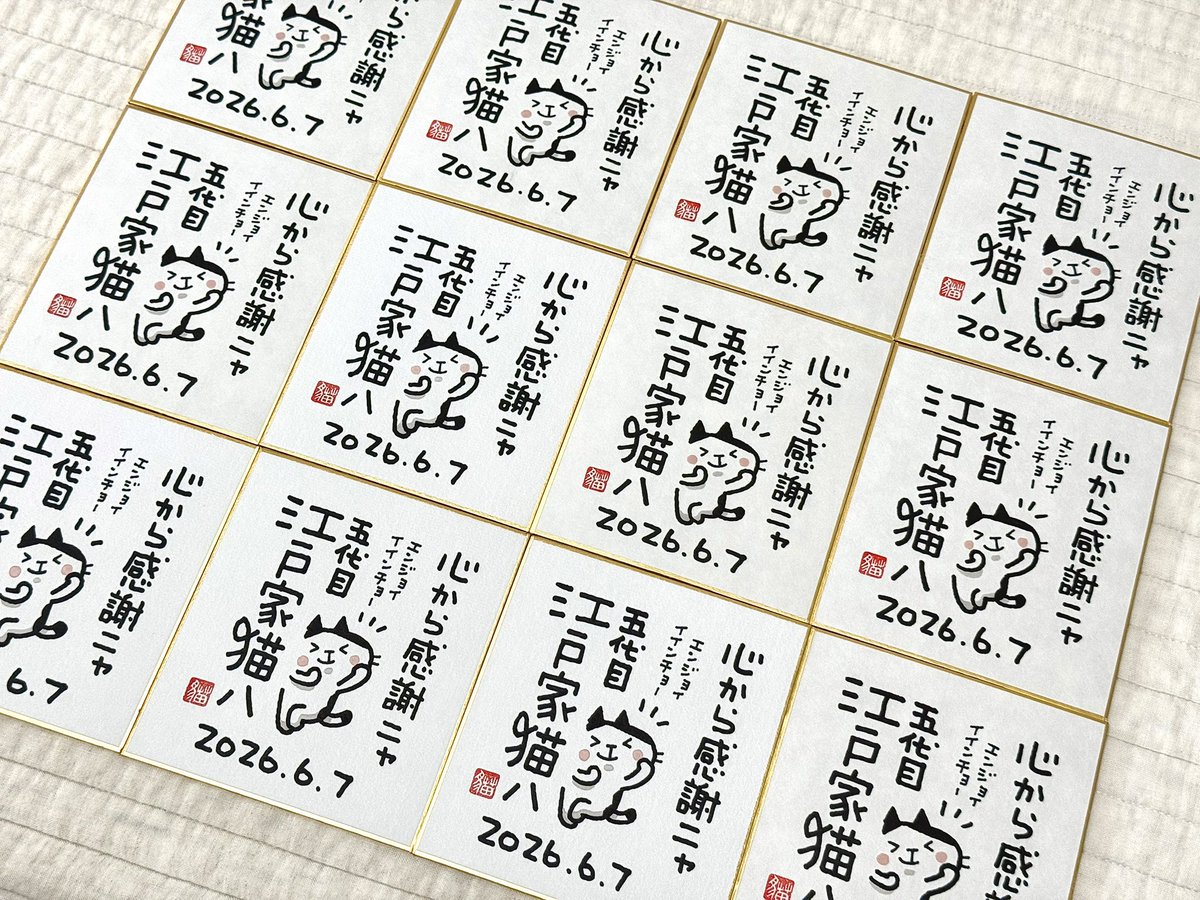 ら感謝ニャ
猫八
貓
2026.6.7
心から感謝ニャ
エンジョイ
イインチョー
五代目
江戸家猫八
貓
2026.6.7
心から感謝ニャ
エンジョイ
イインチョー
五代目
江戸家猫八
貓
2026.6.7
心から感謝ニャ
エンジョイ
イインチョー
五代目
江戸家猫八
貓
2026.6.7
心から感謝ニャ
エンジョイ
イインチョー
五代目
江戸家猫八
貓
2026.6.7
心から感謝ニャ
エンジョイ
イインチョー
五代目
江戸家猫八
貓
2026.6.7
心から感謝ニャ
エンジョイ
イインチョー
五代目
江戸家猫八
貓
2026.6.7
心から感謝ニャ
エンジョイ
イインチョー
五代目
江戸家猫八
貓
2026.6.7
心から感謝ニャ
エンジョイ
イインチョー
五代目
江戸
6.7
心から感謝ニャ
エンジョイ
イインチョー
五代目
江戸家猫八
貓
2026.6.7
心から感謝ニャ
エンジョイ
イインチョー
五代目
江戸家猫八
貓
2026.6.7
心から感
エンジョイ
イインチョー
五代目
江戸家猫八
貓